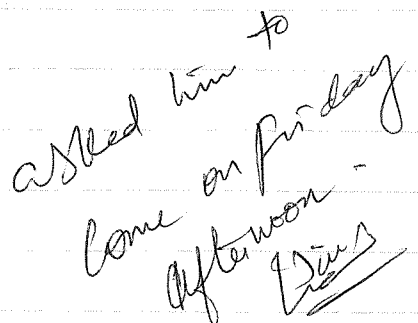 asked him to
come on Friday
afternoon -